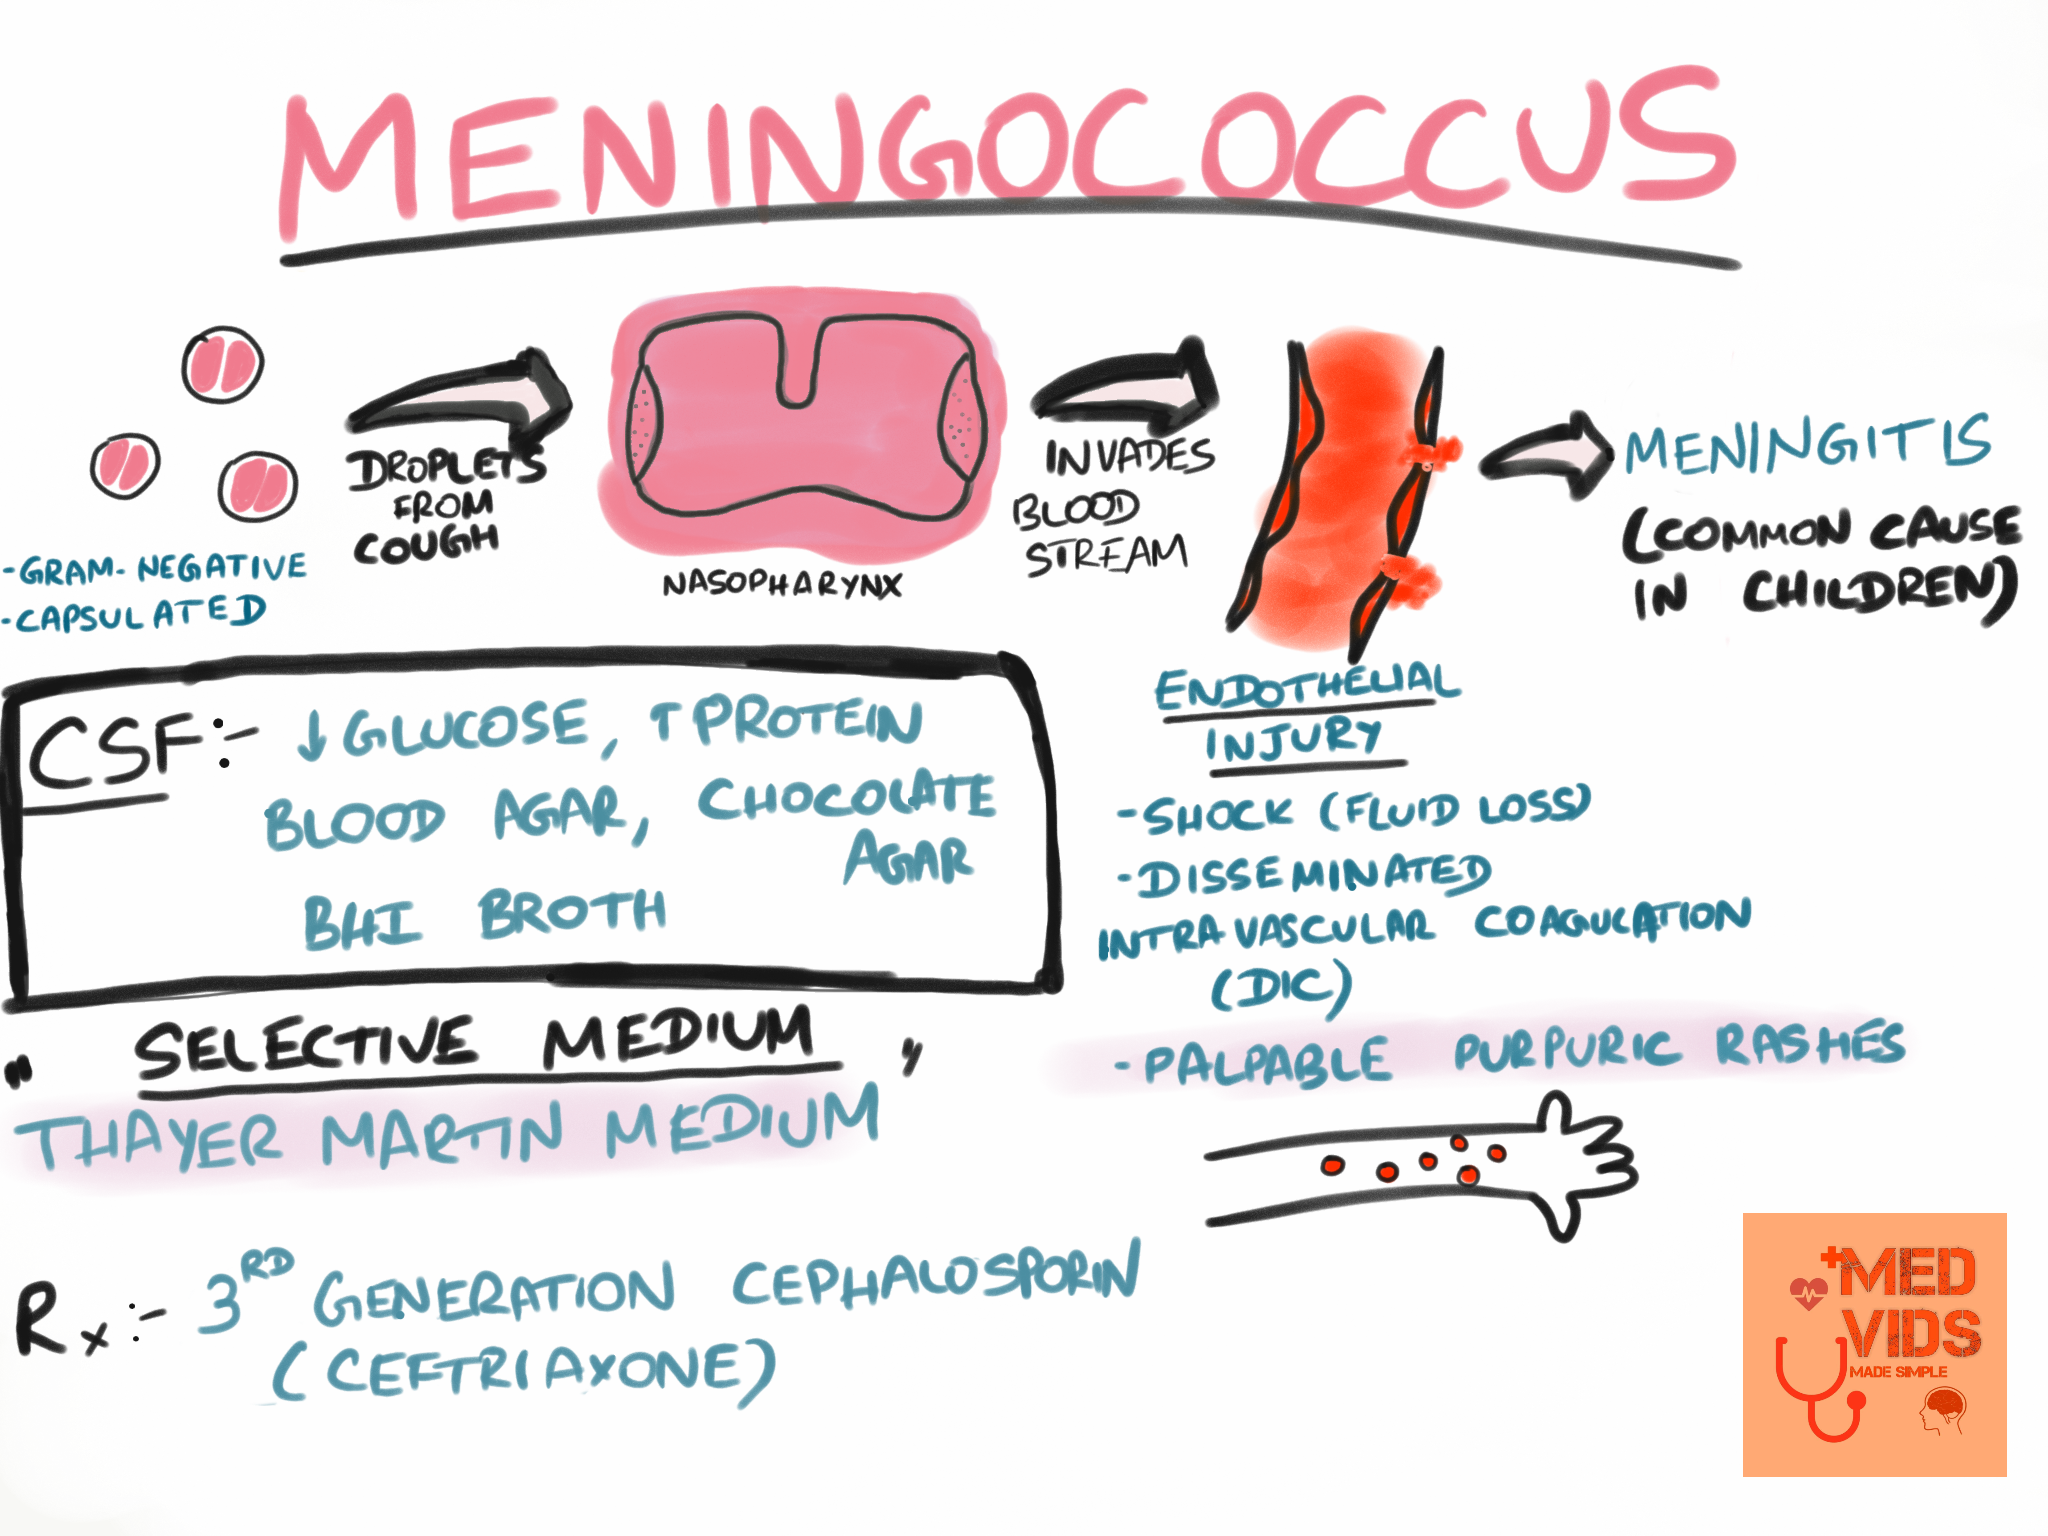 MENINGOCOCCUS
DROPLETS
FROM
COUGH
NASOPHARYNX
INVADES
BLOOD
STREAM
MENINGITIS
(COMMON CAUSE
IN CHILDREN)
-GRAM-NEGATIVE
-CAPSULATED
CSF:- ↓GLUCOSE, ↑PROTEIN
BLOOD AGAR, CHOCOLATE
AGAR
BHI BROTH
ENDOTHELIAL
INJURY
-SHOCK (FLUID LOSS)
-DISSEMINATED
INTRAVASCULAR COAGULATION
(DIC)
-PALPABLE PURPURIC RASHES
" SELECTIVE MEDIUM "
THAYER MARTIN MEDIUM
Rx:- 3RD GENERATION CEPHALOSPORIN
(CEFTRIAXONE)
MED
VIDS
MADE SIMPLE